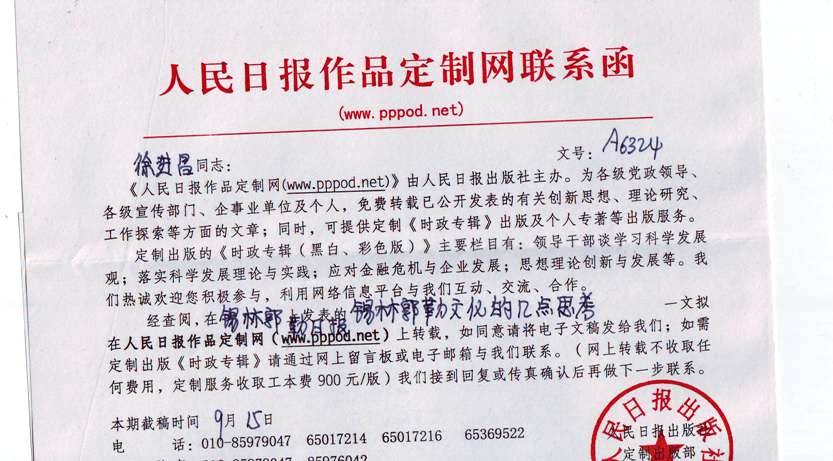 人民日报作品定制网联系函
(www.pppod.net)
徐进昌同志： 文号：A6324
《人民日报作品定制网(www.pppod.net)》由人民日报出版社主办。为各级党政领导、
各级宣传部门、企事业单位及个人，免费转载已公开发表的有关创新思想、理论研究、
工作探索等方面的文章；同时，可提供定制《时政专辑》出版及个人专著等出版服务。
定制出版的《时政专辑（黑白、彩色版）》主要栏目有：领导干部谈学习科学发展
观；落实科学发展理论与实践；应对金融危机与企业发展；思想理论创新与发展等。我
们热诚欢迎您积极参与，利用网络信息平台与我们互动、交流、合作。
经查阅，在锡林郭勒日报上发表的锡林郭勒文化的几点思考一文拟
在人民日报作品定制网（www.pppod.net）上转载，如同意请将电子文稿发给我们；如需
定制出版《时政专辑》请通过网上留言板或电子邮箱与我们联系。（网上转载不收取任
何费用，定制服务收取工本费 900 元/版）我们接到回复或传真确认后再做下一步联系。
本期截稿时间 9月15日
电 话：010-85979047 65017214 65017216 65369522
人民日报出版社
人民日报出版社
定制出版部